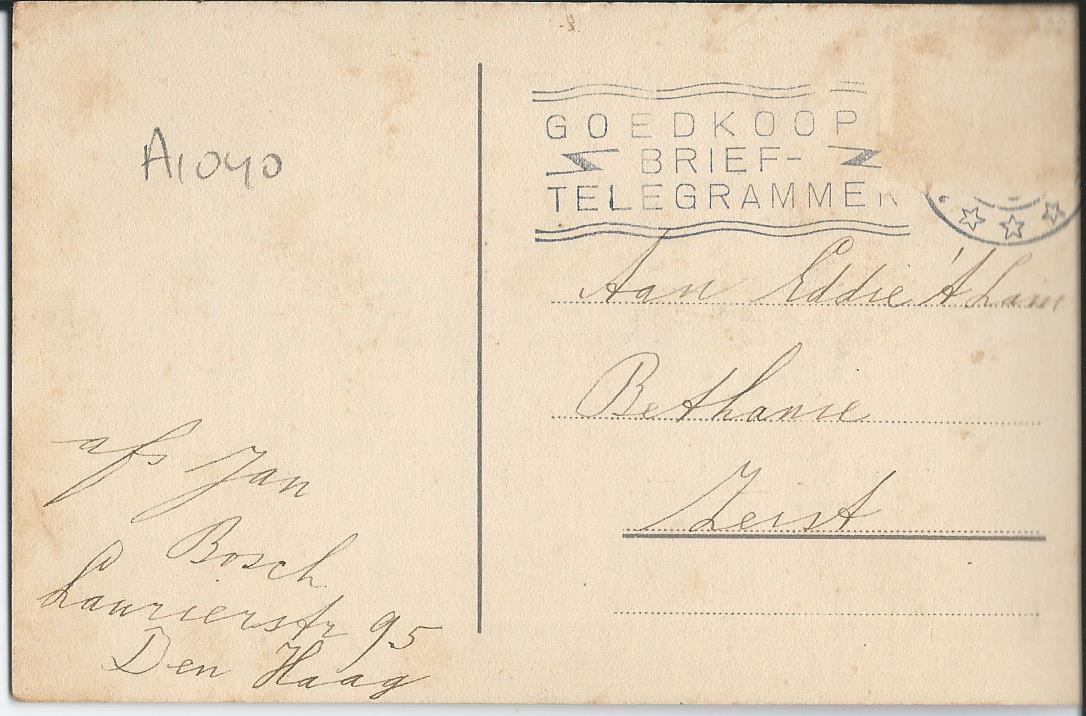 A1040
GOEDKOOP
BRIEF-
TELEGRAMMEN
Aan Eddie
Bethanie
Zeist
afs Jan
Bosch
Laurierstr 95
Den Haag